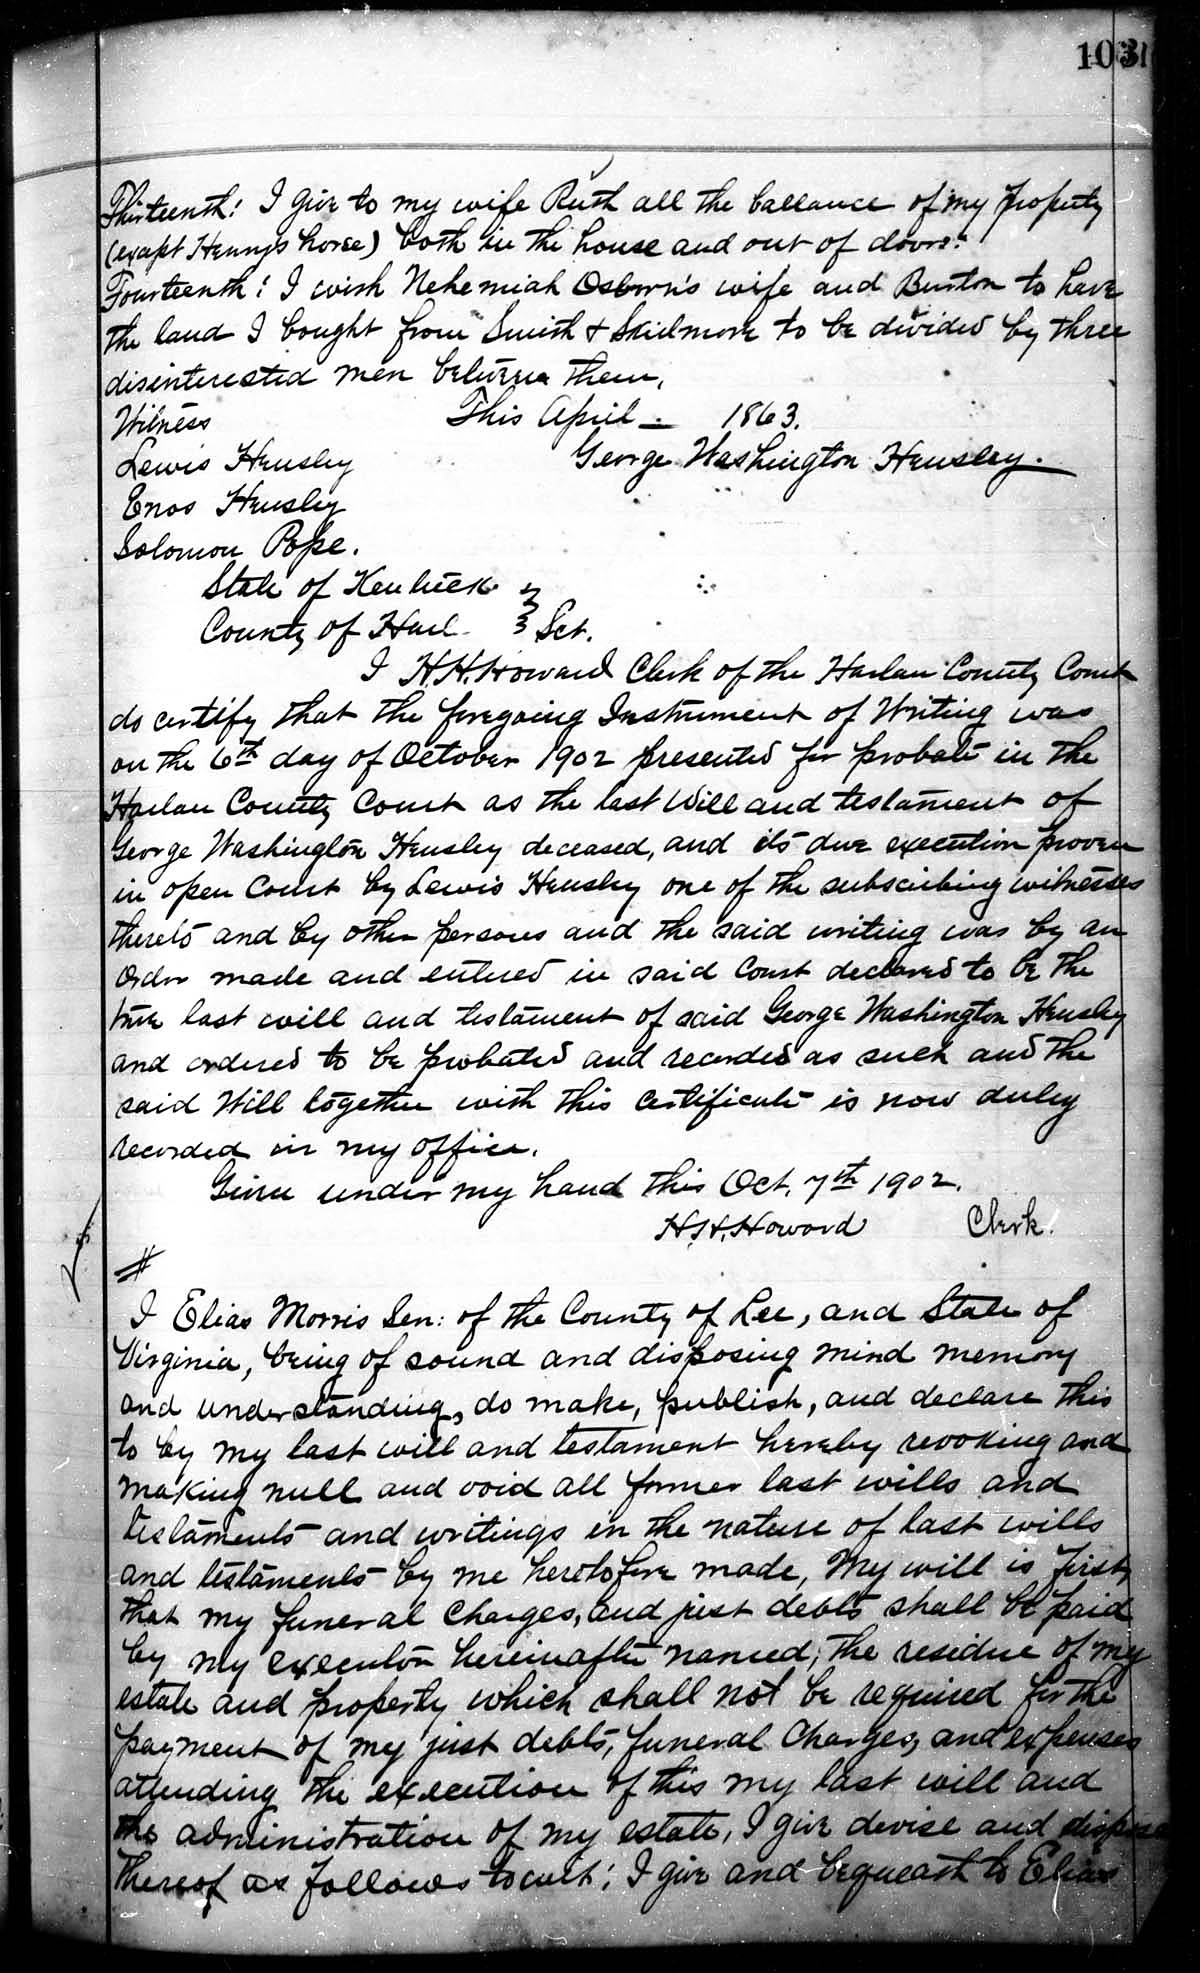 103
Thirteenth: I give to my wife Ruth all the ballance of my property
(exapt Henrys horse) both in the house and out of doors.
Fourteenth: I wish Nehemiah Osborn's wife and Burton to have
the land I bought from Smith & Skidmore to be divided by three
disinterested men between them,
Witness This April — 1863.
Lewis Hensley George Washington Hensley.
Enos Hensley
Solomon Pope.
State of Kentuck
County of Harl Sct.
I H.H. Howard Clerk of the Harlan County Court
do certify that the foregoing Instrument of Writing was
on the 6th day of October 1902 presented for probate in the
Harlan County Court as the last Will and testament of
George Washington Hensley deceased, and its due execution proven
in open Court by Lewis Hensley one of the subscribing witnesses
thereto and by other persons and the said writing was by an
order made and entered in said Court declared to be the
true last will and testament of said George Washington Hensley
and ordered to be probated and recorded as such and the
said Will together with this certificate is now duley
recorded in my office.
Given under my hand this Oct. 7th 1902.
H.H. Howard Clerk.
#
I Elias Morris Sen: of the County of Lee, and State of
Virginia, being of sound and disposing mind memory
and understanding, do make, publish, and declare this
to by my last will and testament hereby revoking and
making null and void all former last wills and
testaments and writings in the nature of last wills
and testaments by me heretofore made, My will is first,
that my funeral charges, and just debts shall be paid
by my executor hereinafter named; the residue of my
estate and property which shall not be required for the
payment of my just debts, funeral Charges, and expenses
attending the execution of this my last will and
the administration of my estate, I give devise and dispose
thereof as follows towit: I give and bequeath to Elias